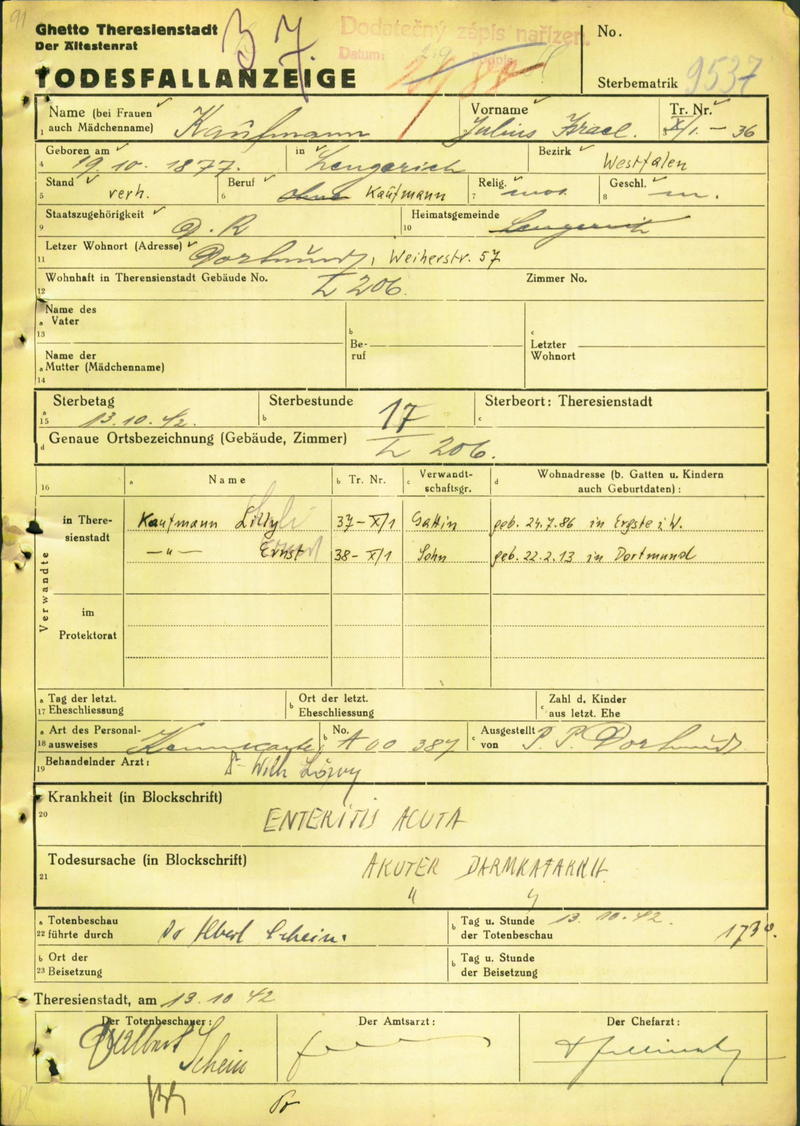 91
Ghetto Theresienstadt
Der Ältestenrat
37.
Dodatečný zápis nařízen.
Datum:
No.
TODESFALLANZEIGE
Sterbematrik 9537
Name (bei Frauen auch Mädchenname) Kaufmann
Vorname Julius Israel.
Tr. Nr. X/1. – 36
1
Geboren am 19.10.1877. in Lengerich
Bezirk Westfalen
4
Stand verh.
Beruf Kaufmann
Relig. mos.
Geschl. m.
5 6 7 8
Staatszugehörigkeit D.R
Heimatsgemeinde Lengerich
9 10
Letzer Wohnort (Adresse) Dortmund, Weiherstr. 57
11
Wohnhaft in Theresienstadt Gebäude No. L 206.
Zimmer No.
12
Name des
a Vater
13
b Be-
ruf
c Letzter
Wohnort
Name der
a Mutter (Mädchenname)
14
Sterbetag 13.10.42.
Sterbestunde 17
Sterbeort: Theresienstadt
a 15 b c
d Genaue Ortsbezeichnung (Gebäude, Zimmer) L 206.
16 a Name b Tr. Nr. c Verwandt-
schaftsgr. d Wohnadresse (b. Gatten u. Kindern
auch Geburtdaten):
Verwandte
in There-
sienstadt
Kaufmann Lilly 37–X/1 Gattin geb. 24.7.86 in Ergste i.W.
—„— Ernst 38–X/1 Sohn geb. 22.2.13 in Dortmund
im
Protektorat
a Tag der letzt.
17 Eheschliessung
b Ort der letzt.
Eheschliessung
c Zahl d. Kinder
aus letzt. Ehe
a Art des Personal-
18 ausweises Kennkarte
b No. A 00 387
c Ausgestellt
von P.P. Dortmund
Behandelnder Arzt: Dr Wilh Löwy
19
Krankheit (in Blockschrift)
20
ENTERITIS ACUTA
Todesursache (in Blockschrift)
21
AKUTER DARMKATARRH
„ „
a Totenbeschau
22 führte durch Dr Albert Schein.
b Tag u. Stunde
der Totenbeschau 13.10.42. 17 30.
b Ort der
23 Beisetzung
b Tag u. Stunde
der Beisetzung
Theresienstadt, am 13.10 42
Der Totenbeschauer:
Der Amtsarzt:
Der Chefarzt:
Dr Albert
Schein